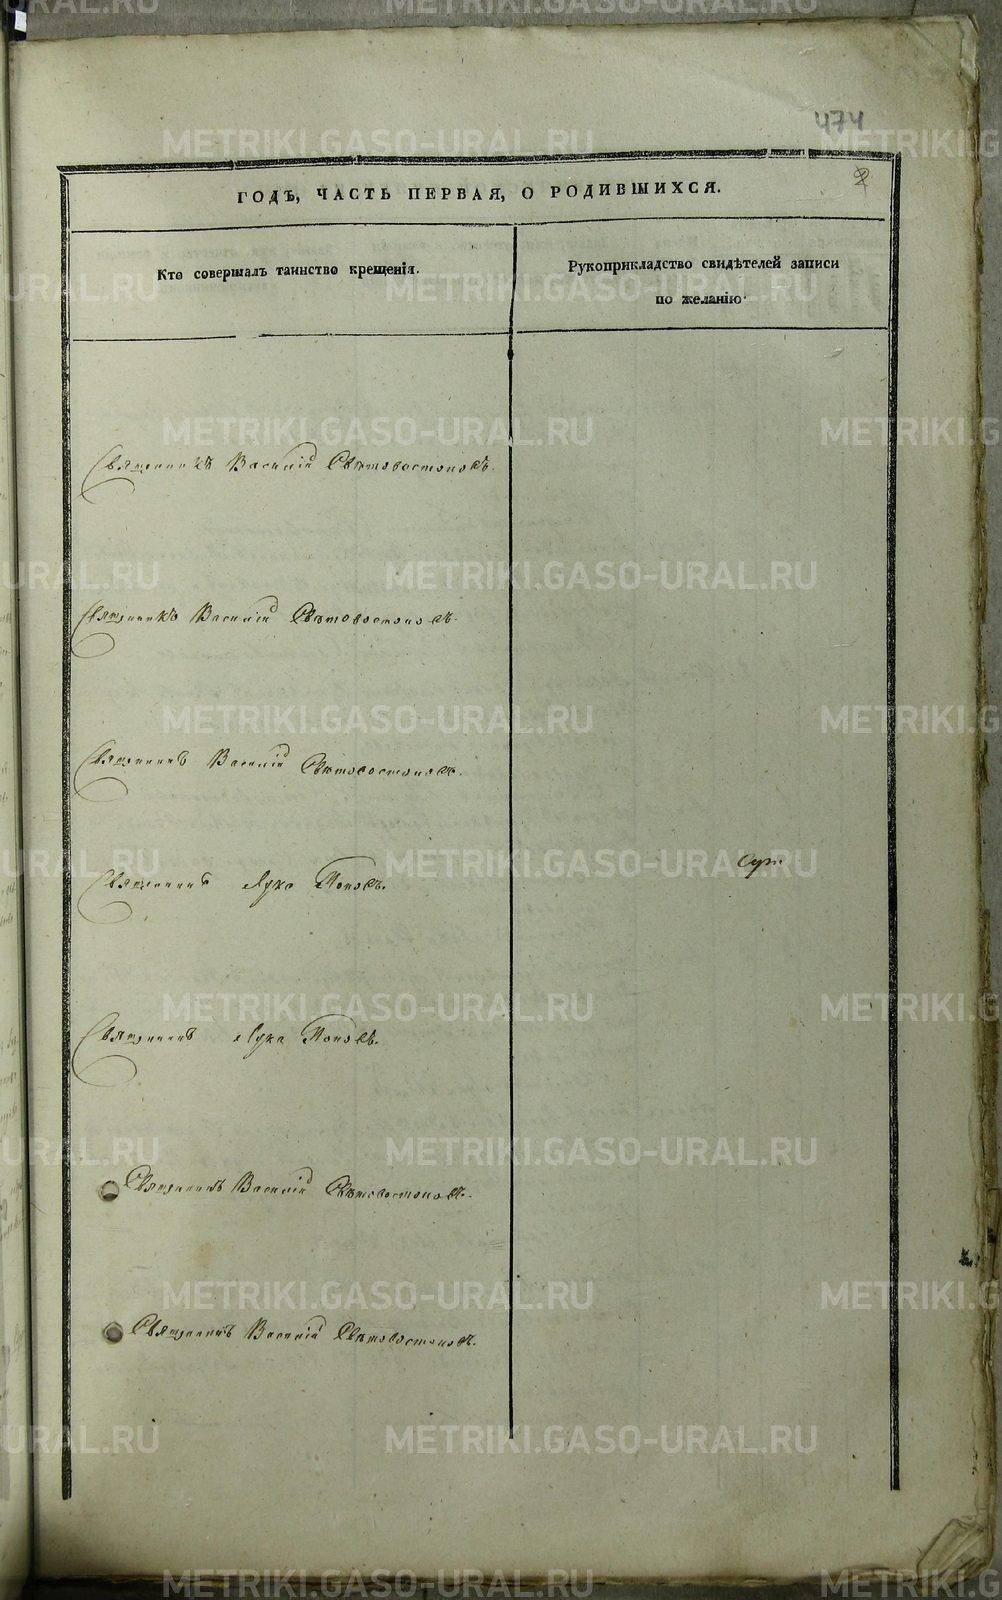 474
2
ГОДЪ, ЧАСТЬ ПЕРВАЯ, О РОДИВШИХСЯ.
Кто совершалъ таинство крещенія.
Рукоприкладство свидѣтелей записи
по желанію.
Священникъ Василій Свѣтовостоковъ.
Священникъ Василій Свѣтовостоковъ.
Священникъ Василій Свѣтовостоковъ.
Священникъ Лука Поповъ.
Священникъ Лука Поповъ.
Священникъ Василій Свѣтовостоковъ.
Священникъ Василій Свѣтовостоковъ.
METRIKI.GASO-URAL.RU